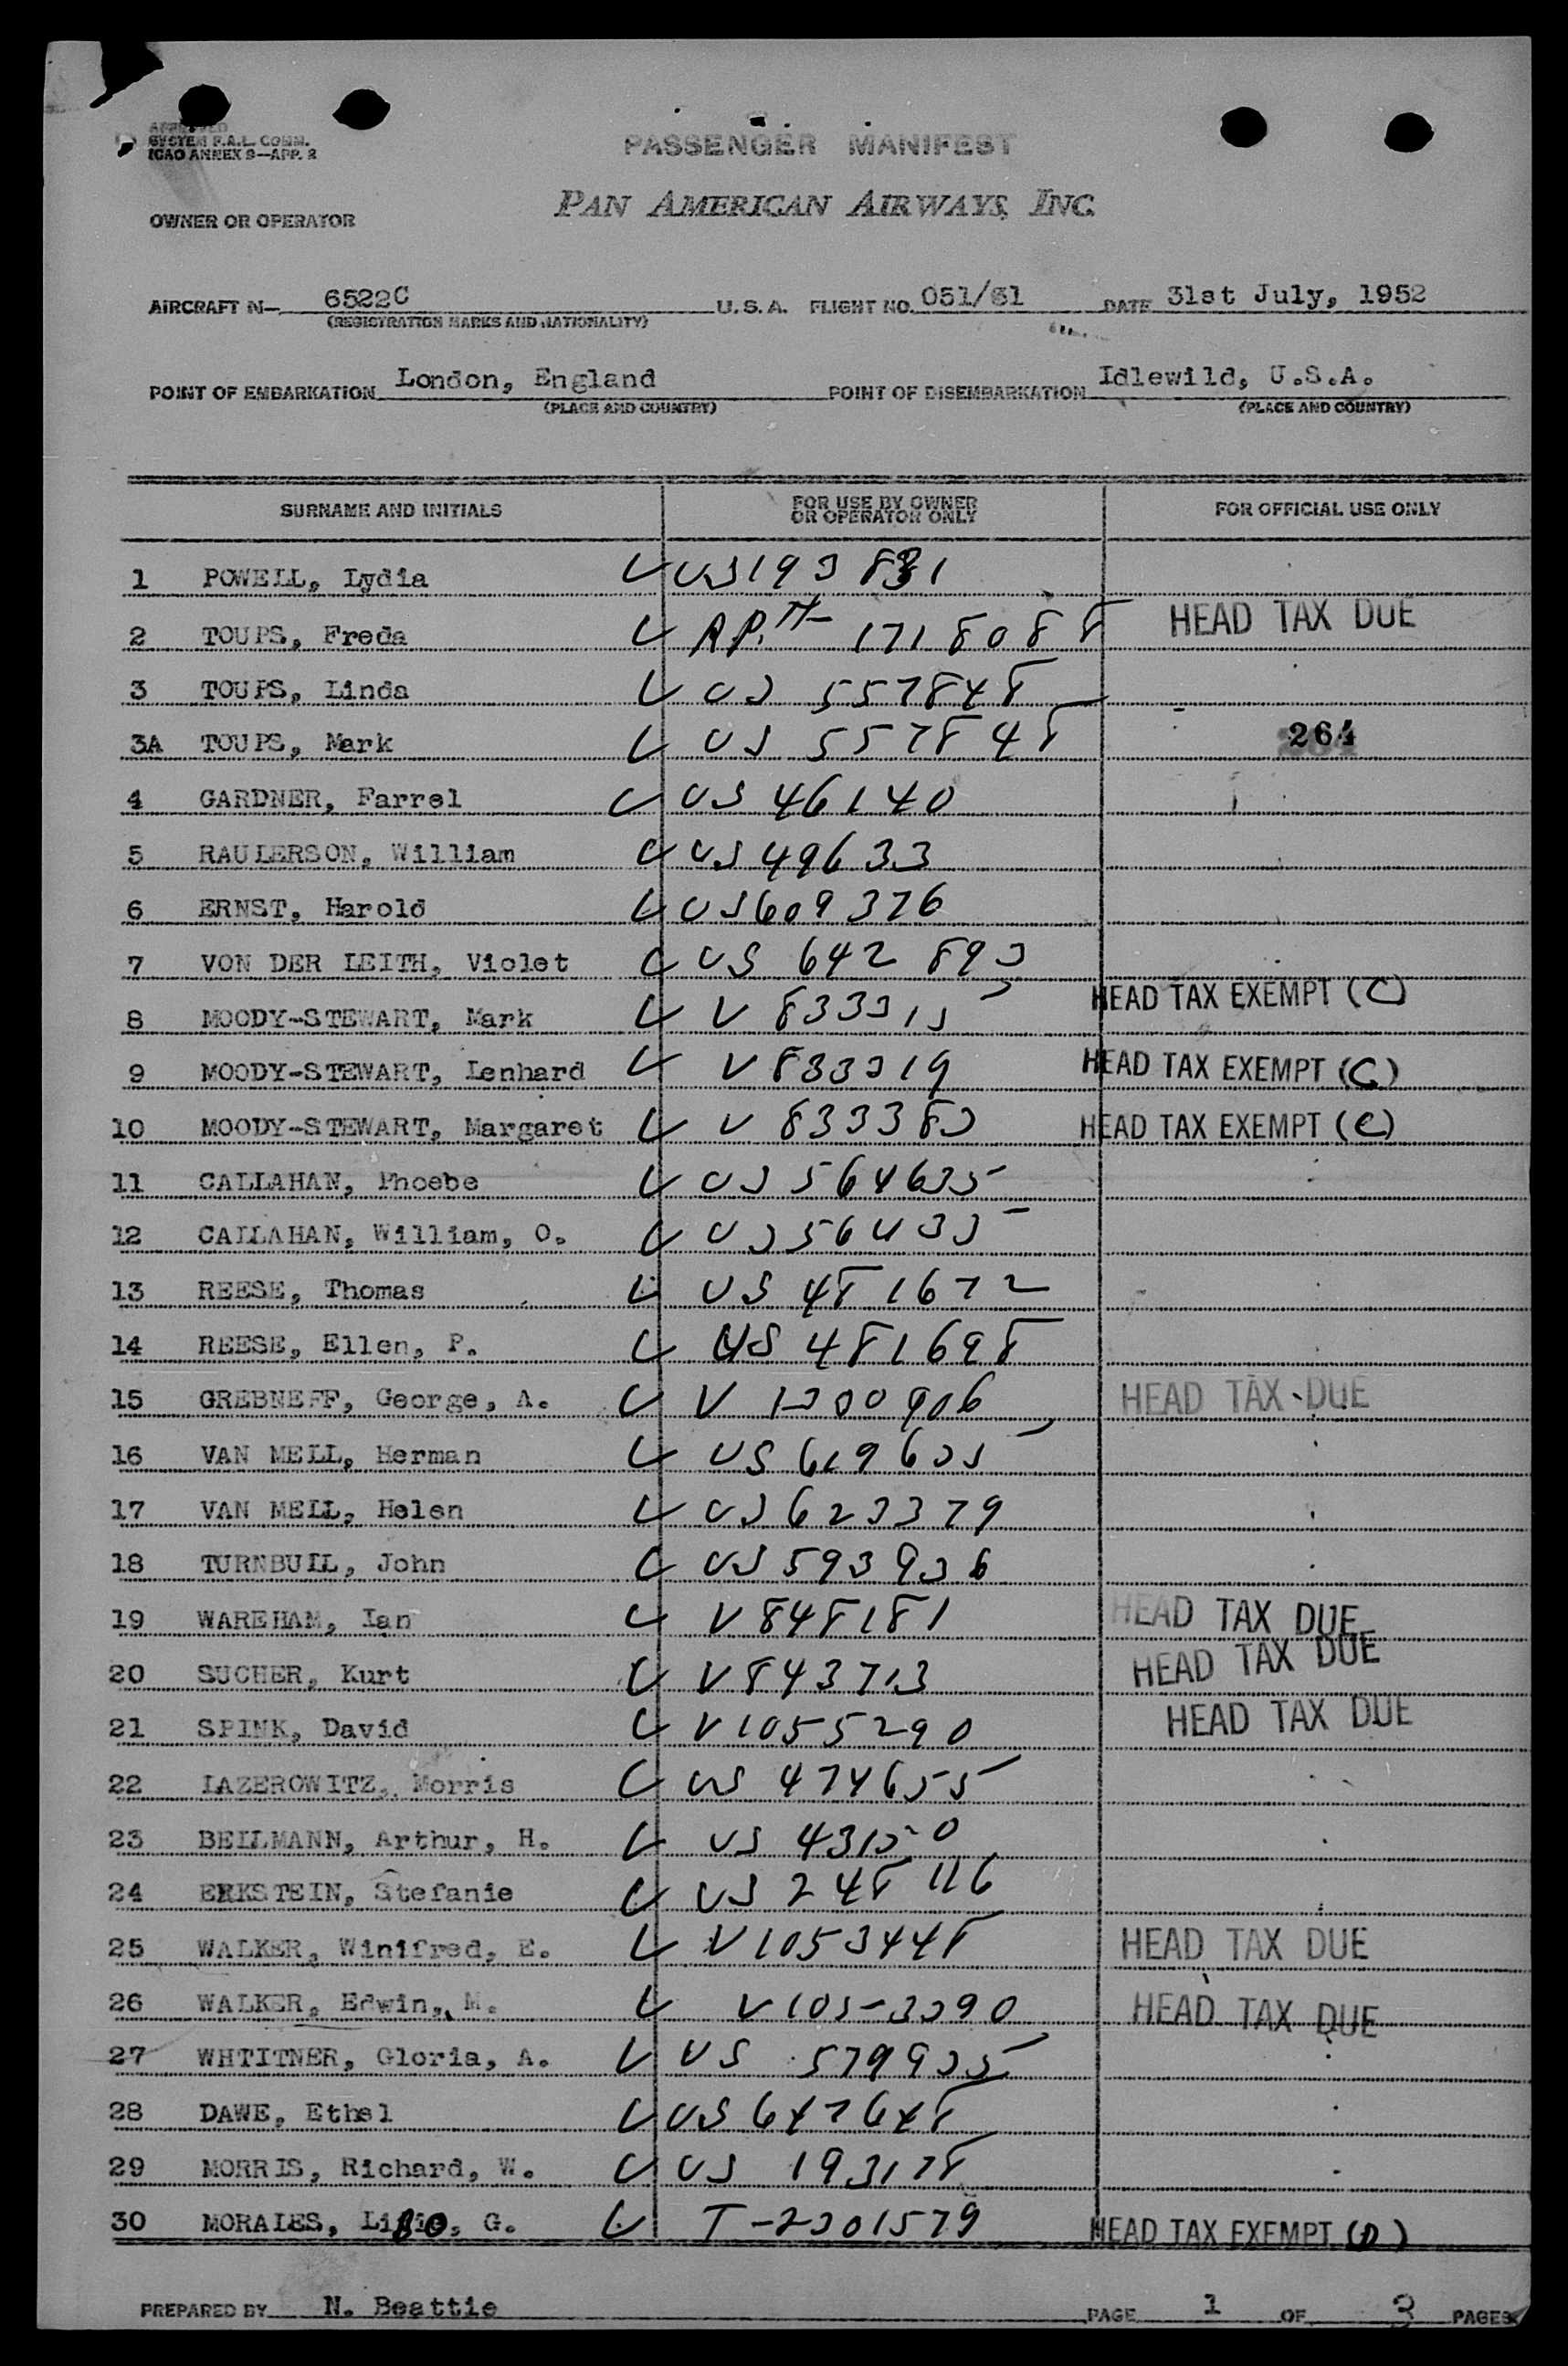 APPROVED
SYSTEM F.A.L. COMM.
ICAO ANNEX 9—APP. 2
PASSENGER MANIFEST
OWNER OR OPERATOR
PAN AMERICAN AIRWAYS, INC.
AIRCRAFT N— 6522C U.S.A. FLIGHT NO. 051/31 DATE 31st July, 1952
(REGISTRATION MARKS AND NATIONALITY)
POINT OF EMBARKATION London, England POINT OF DISEMBARKATION Idlewild, U.S.A.
(PLACE AND COUNTRY) (PLACE AND COUNTRY)
SURNAME AND INITIALS FOR USE BY OWNER OR OPERATOR ONLY FOR OFFICIAL USE ONLY
1 POWELL, Lydia US 193831
2 TOUPS, Freda 1718088 HEAD TAX DUE
3 TOUPS, Linda US 557848
3A TOUPS, Mark US 557848 264
4 GARDNER, Farrel US 46140
5 RAULERSON, William US 49633
6 ERNST, Harold US 609376
7 VON DER LEITH, Violet US 642893
8 MOODY-STEWART, Mark V 833315 HEAD TAX EXEMPT (C)
9 MOODY-STEWART, Lenhard V 833319 HEAD TAX EXEMPT (C)
10 MOODY-STEWART, Margaret V 833383 HEAD TAX EXEMPT (C)
11 CALLAHAN, Phoebe US 564635
12 CALLAHAN, William, O. US
13 REESE, Thomas US 481672
14 REESE, Ellen, P. US 481698
15 GREBNEFF, George, A. V HEAD TAX DUE
16 VAN MELL, Herman US 619635
17 VAN MELL, Helen US 623379
18 TURNBULL, John US 593936
19 WAREHAM, Ian V 848181 HEAD TAX DUE
20 SUCHER, Kurt V 843713 HEAD TAX DUE
21 SPINK, David V 1055290 HEAD TAX DUE
22 LAZEROWITZ, Morris US 474655
23 BEILMANN, Arthur, H. US 43150
24 EKSTEIN, Stefanie US 248116
25 WALKER, Winifred, E. V 1053448 HEAD TAX DUE
26 WALKER, Edwin, M. V 1053390 HEAD TAX DUE
27 WHTITNER, Gloria, A. US 579935
28 DAWE, Ethel US 647648
29 MORRIS, Richard, W. US 193178
30 MORALES, G. T-2301579 HEAD TAX EXEMPT (D)
PREPARED BY N. Beattie PAGE 1 OF 3 PAGES